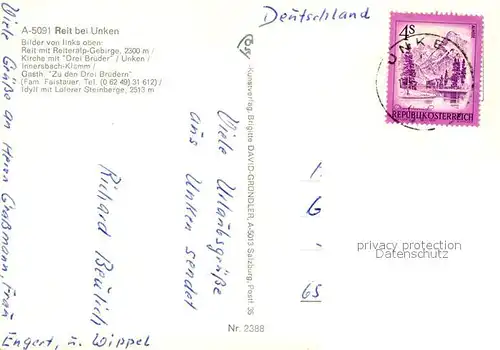 A-5091 Reit bei Unken
Bilder von links oben:
Reit mit Reiteralp-Gebirge, 2300 m /
Kirche mit "Drei Brüder" / Unken /
Innersbach-Klamm /
Gasth. "Zu den Drei Brüdern"
(Fam. Faistauer, Tel. (0 62 49) 31 612) /
Idyll mit Loferer Steinberge, 2513 m
Deutschland
4S
REPUBLIK ÖSTERREICH
UNKEN
Viele Urlaubsgrüße
aus Unken sendet
Richard
Viele Grüße an Herrn Graßmann, Frau
Engert, u. Wippel
Kunstverlag Brigitte DAVID-GRÜNDLER, A-5013 Salzburg, Postf. 35
Nr. 2388
G
65
privacy protection
Datenschutz